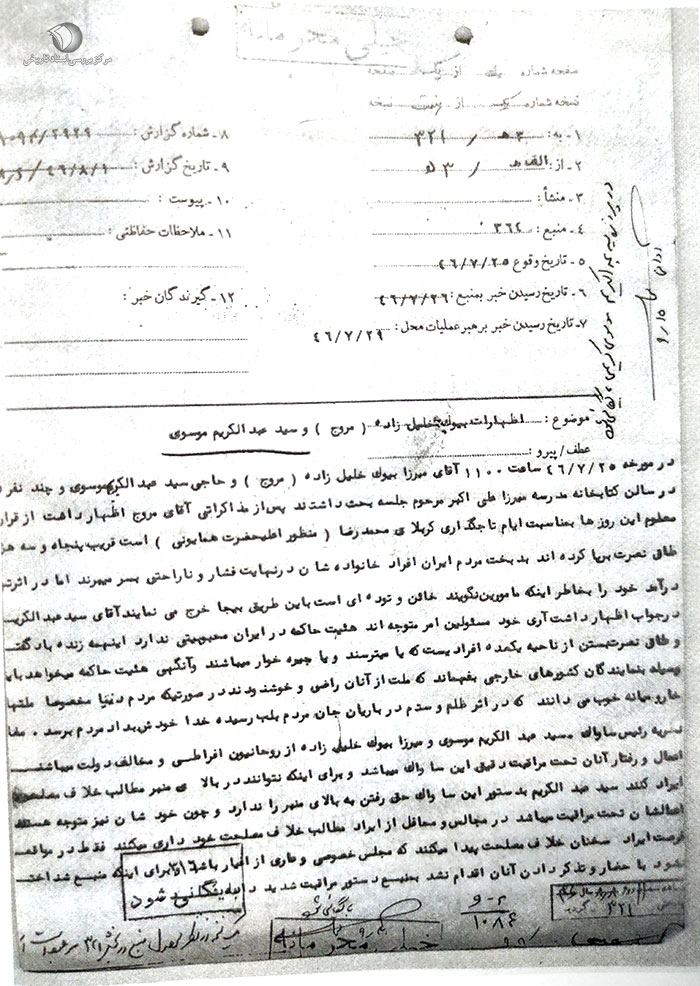 مرکز بررسی اسناد تاریخی
خیلی محرمانه
صفحه شماره یک از یک صفحه
نسخه شماره یک از هفت نسخه
۱ـ به: ۳ هـ / ۳۲۱
۲ـ از: الف هـ / ۳ هـ
۳ـ منشأ:
۴ـ منبع: ۳۶۲
۵ـ تاریخ وقوع ۴۶/۷/۲۵
۶ـ تاریخ رسیدن خبر بمنبع: ۴۶/۷/۲۶
۷ـ تاریخ رسیدن خبر برهبر عملیات محل: ۴۶/۷/۲۹
۸ـ شماره گزارش:
۹ـ تاریخ گزارش: ۴۶/۸/۱
۱۰ـ پیوست:
۱۱ـ ملاحظات حفاظتی:
۱۲ـ گیرندگان خبر:
موضوع: اظهارات بیوک خلیل زاده ( مروج ) و سید عبدالکریم موسوی
عطف/پیرو:
در مورخه ۴۶/۷/۲۵ ساعت ۱۱۰۰ آقای میرزا بیوک خلیل زاده ( مروج ) و حاجی سید عبدالکریم موسوی و چند نفر
در سالن کتابخانه مدرسه میرزا علی اکبر مرحوم جلسه بحث داشتند پس از مذاکراتی آقای مروج اظهار داشت از قرار
معلوم این روزها بمناسبت ایام تاجگذاری کربلائی محمد رضا ( منظور اعلیحضرت همایونی ) است قریب پنجاه و سه
طاق نصرت برپا کرده اند بدبخت مردم ایران افراد خانواده شان در نهایت فشار و ناراحتی بسر میبرند اما در اثر
درآمد خود را بخاطر اینکه مامورین نگویند خائن و توده ای است باین طریق بیجا خرج می نمایند آقای سید عبدالکریم
در جواب اظهار داشت آری خود مسئولین امر متوجه اند هیئت حاکمه در ایران محبوبیتی ندارد اینهمه زنده باد گفتن
و طاق نصرت بستن از ناحیه یکعده افرادیست که یا میترسند و یا جیره خوار میباشند وآنگهی هیئت حاکمه میخواهد باین
وسیله بنمایندگان کشورهای خارجی بفهماند که ملت از آنان راضی و خوشنودند در صورتیکه مردم دنیا مخصوصا ملتهای
خاورمیانه خوب می دانند که در اثر ظلم و ستم درباریان جان مردم بلب رسیده خدا خودش بداد مردم برسد .
نظریه رئیس ساواک ـ سید عبدالکریم موسوی و میرزا بیوک خلیل زاده از روحانیون افراطی و مخالف دولت میباشند
اعمال و رفتار آنان تحت مراقبت دقیق این ساواک میباشد و برای اینکه نتوانند در بالای منبر مطالب خلاف مصلحت
ایراد کنند سید عبدالکریم بدستور این ساواک حق رفتن به بالای منبر را ندارد و چون خودشان نیز متوجه هستند
اعمالشان تحت مراقبت میباشد در مجالس و محافل از ایراد مطالب خلاف مصلحت خودداری میکنند فقط در مواقعی
فرصت ایراد سخنان خلاف مصلحت پیدا میکنند که مجلس خصوصی و عاری از اغیار باشد و برای اینکه منبع شناخته
نشود با احضار و تذکر دادن آنان اقدام نشد بمنبع دستور مراقبت شدید داده
بایگانی شود
بایگانی شود
۳۲۱
خیلی محرمانه